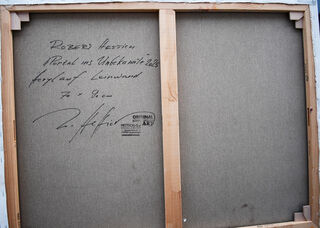 ROBERT HETTICH
"Portal ins Unbekannte" 2023
Acryl auf Leinwand
70 x 90 cm
R. Hettich
ORIGINAL
ART